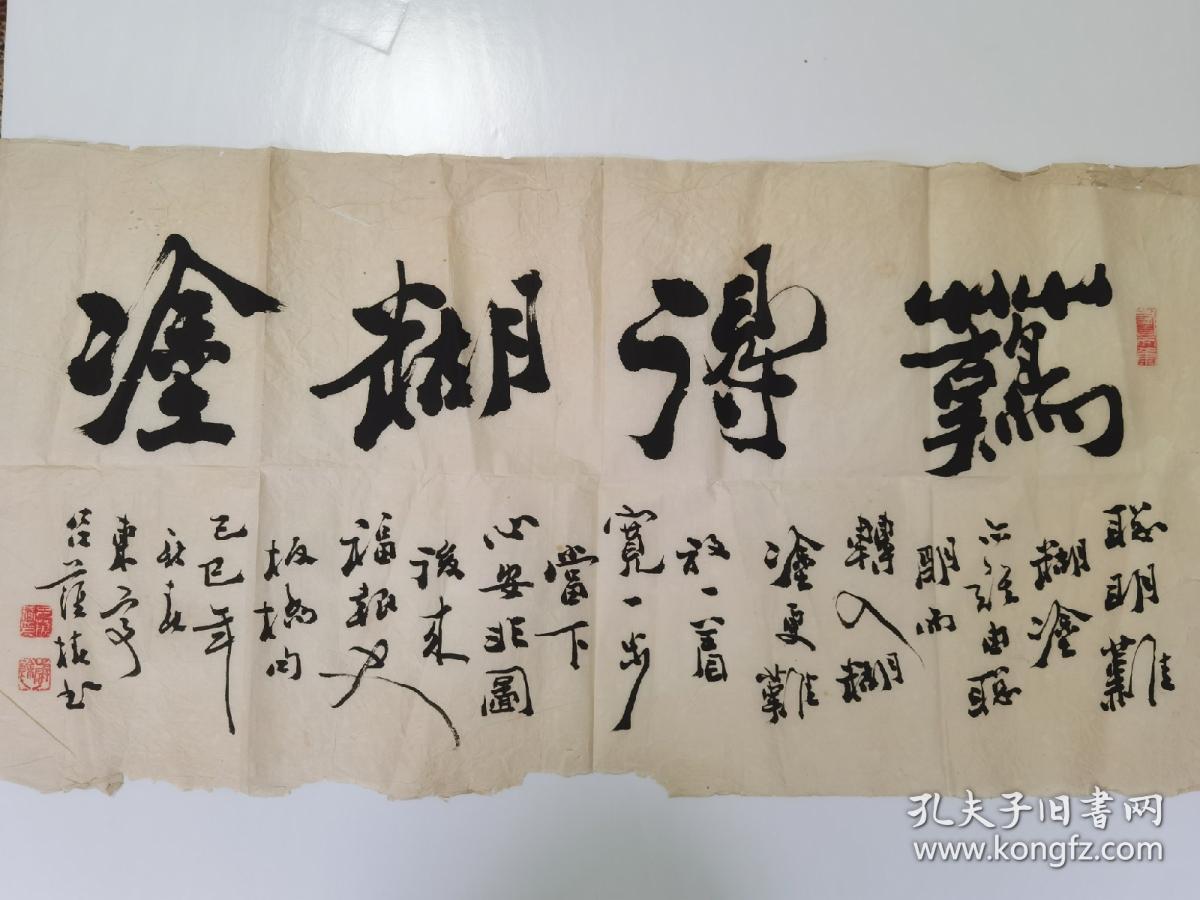 難得糊塗
聰明難
糊塗
亦難由聰
明而
轉入糊
塗更難
放一着
寬一步
當下
心安非圖
後來
福報也
板橋句
己巳年
秋
東寧
吕
孔夫子旧书网
www.kongfz.com